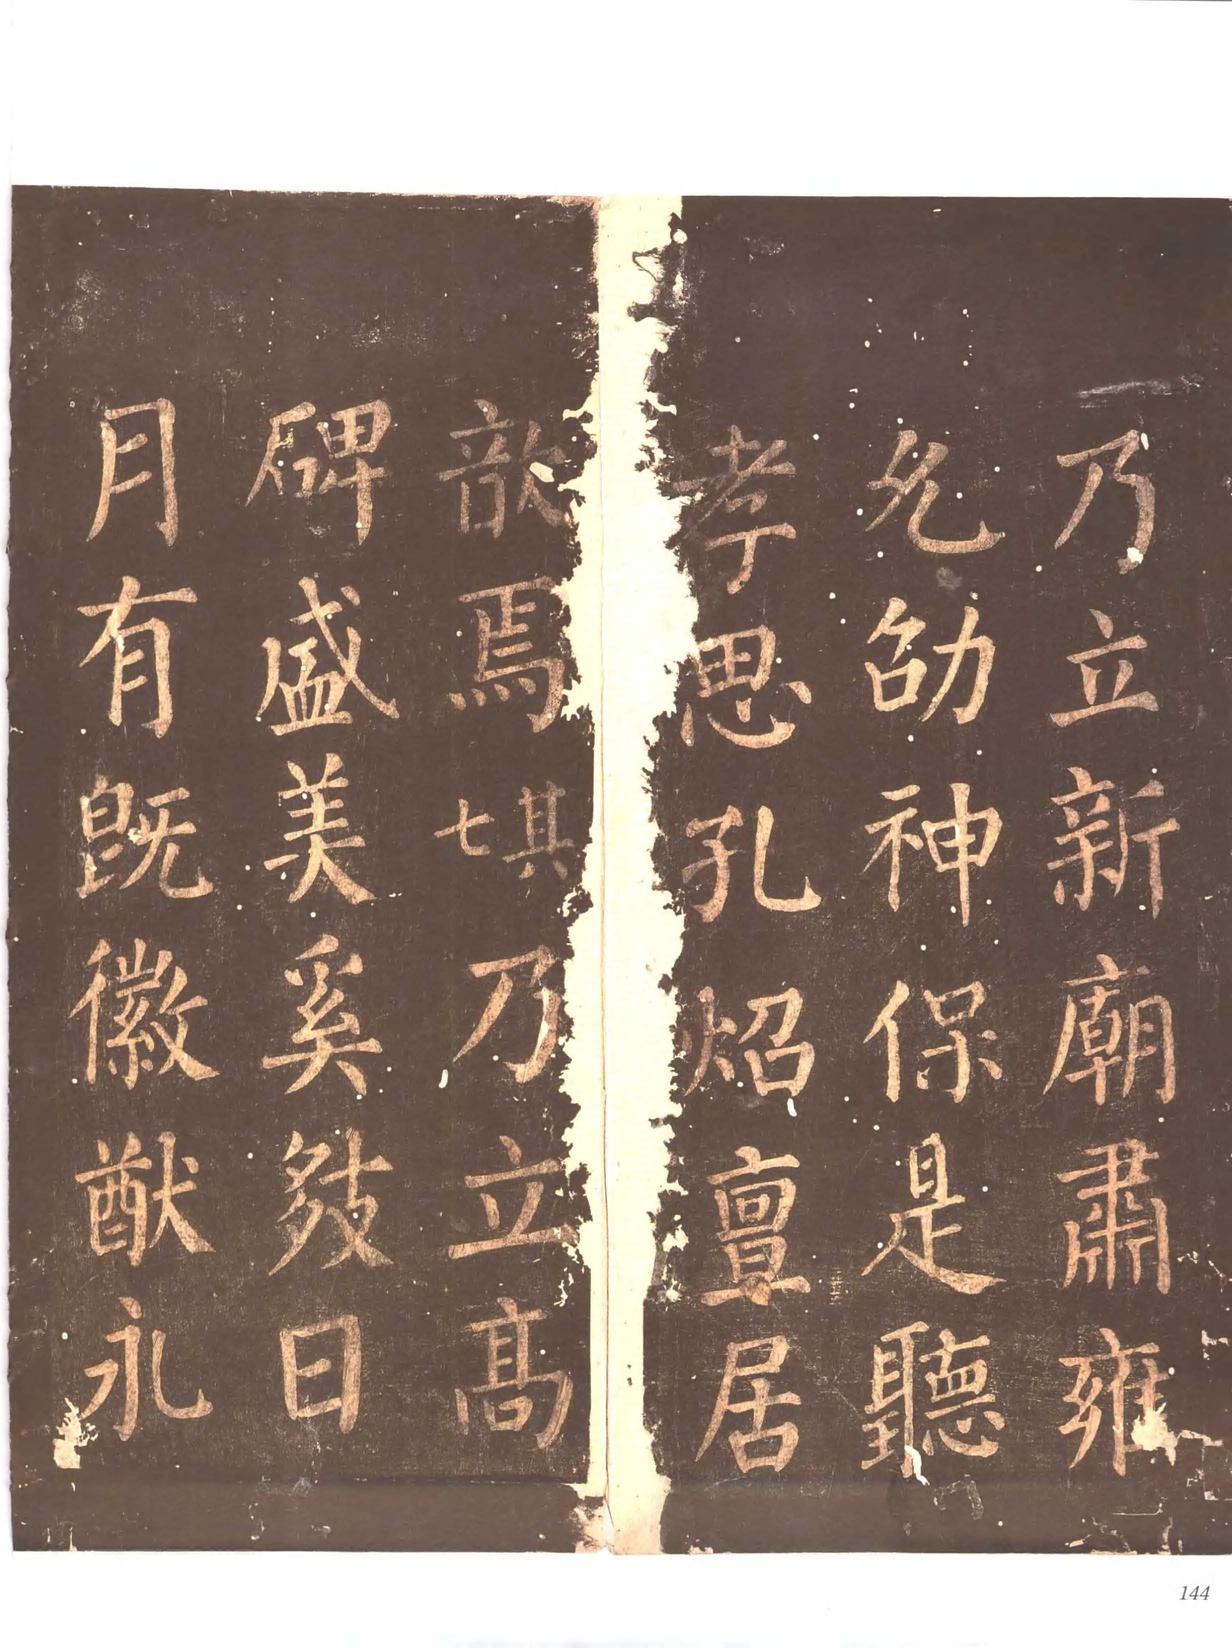 乃立新廟肅雍
允劭神保是聽
孝思孔炤亶居
歆焉其七乃立高
碑盛美奚斁日
月有旣徽猷永
144